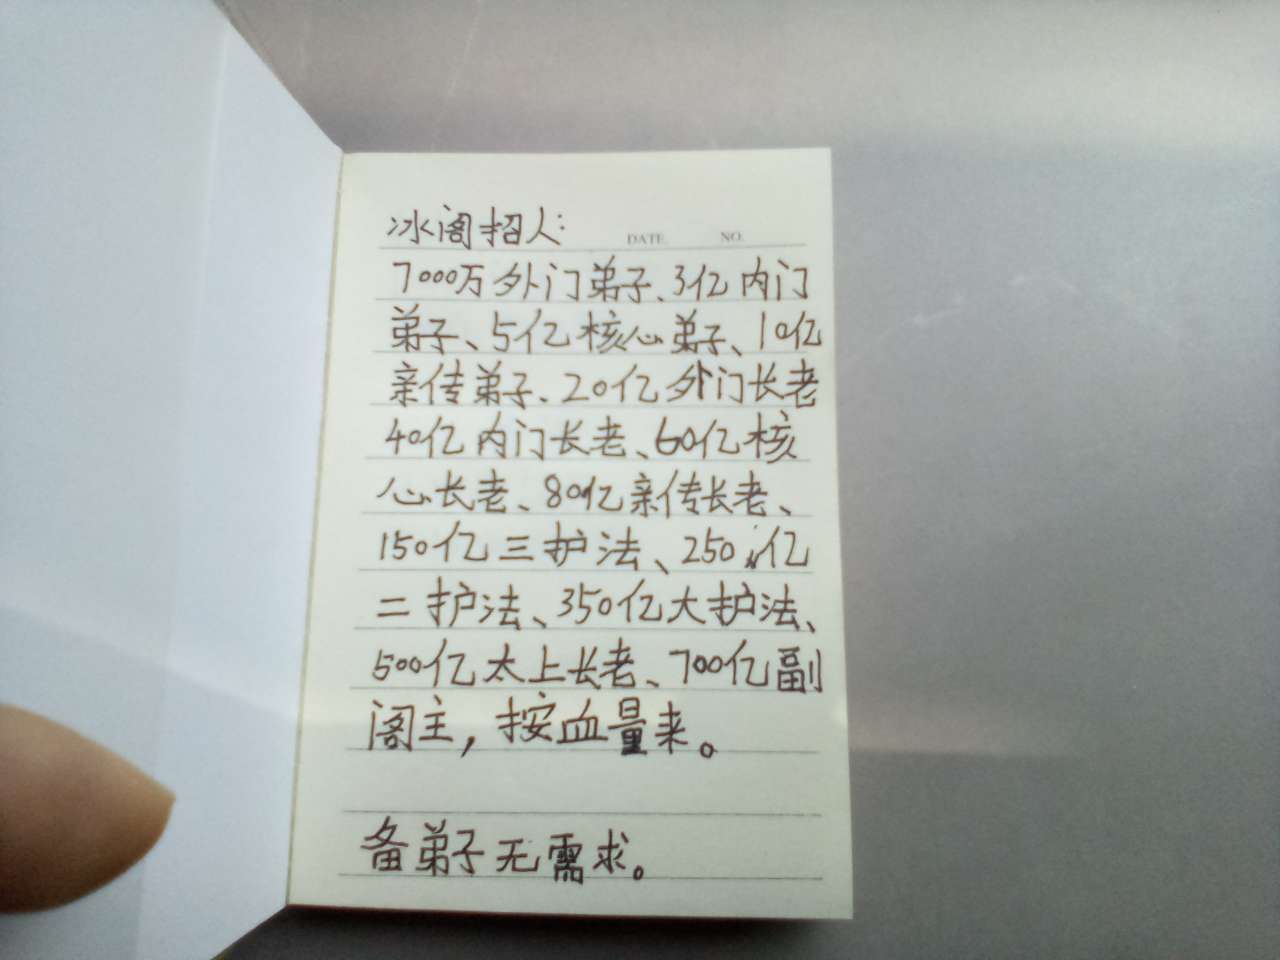 冰阁招人:
DATE. NO.
7000万外门弟子、3亿内门
弟子、5亿核心弟子、10亿
亲传弟子、20亿外门长老
40亿内门长老、60亿核
心长老、80亿亲传长老、
150亿三护法、250亿
二护法、350亿大护法、
500亿太上长老、700亿副
阁主，按血量来。
备弟子无需求。